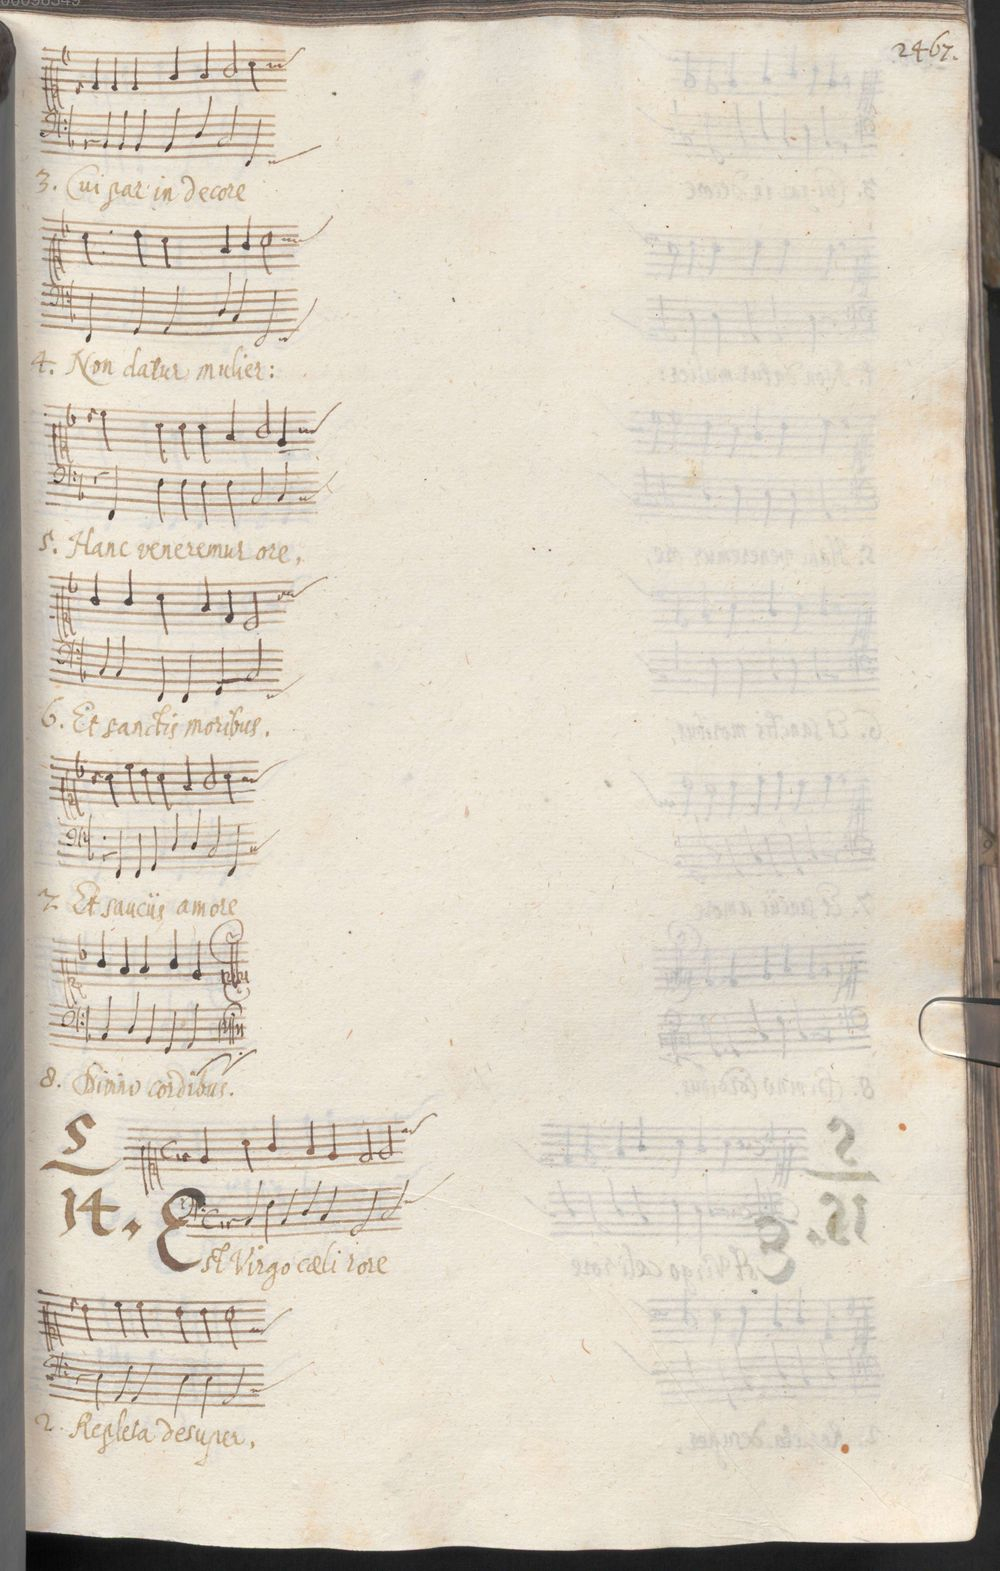 2467.
3. Cui par in decore
4. Non datur mulier:
5. Hanc veneremur ore,
6. Et sanctis moribus.
7. Et sauciis amore
8. cordibus.
5
14. Est Virgo cæli rore
2. Repleta desuper.